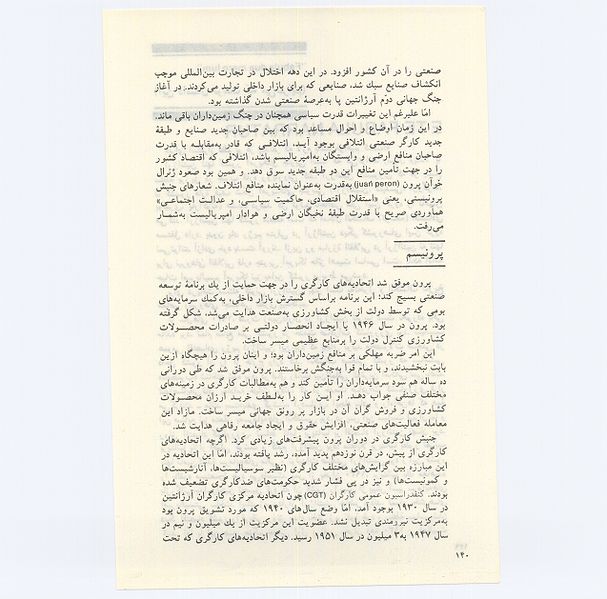 صنعتی را در آن کشور افزود. در این دهه اختلال در تجارت بین‌المللی موجب
انکشاف صنایع سبك شد، صنایعی که برای بازار داخلی تولید می‌کردند. در آغاز
جنگ جهانی دوّم آرژانتین پا به‌عرصهٔ صنعتی شدن گذاشته بود.
امّا علیرغم این تغییرات قدرت سیاسی همچنان در چنگ زمین‌داران باقی ماند.
در این زمان اوضاع و احوال مساعد بود که بین صاحبان جدید صنایع و طبقهٔ
جدید کارگر صنعتی ائتلافی بوجود آیـد، ائتلافـی که قادر به‌مقابلـه با قدرت
صاحبان منافع ارضی و وابستگان به‌امپریالیسم باشد، ائتلافی که اقتصاد کشور
را در جهت تأمین منافع این دو طبقه جدید سوق دهد. و همین بود صعود ژنرال
خوآن پرون (juań peron) به‌قدرت به‌عنوان نماینده منافع ائتلاف. شعارهای جنبش
پرونیستی، یعنی «استقلال اقتصادی، حاکمیت سیاسـی، و عدالـت اجتماعـی»
هماوردی صریح با قدرت طبقهٔ نخبگان ارضی و هوادار امپریالیست به‌شمـار
می‌رفت.
پرونیسم
پرون موفق شد اتحادیه‌های کارگری را در جهت حمایت از یك برنامهٔ توسعه
صنعتی بسیج کند؛ این برنامه براساس گسترش بازار داخلی، به‌کمك سرمایه‌های
بومی که توسط دولت از بخش کشاورزی به‌صنعت هدایت می‌شد، شکل گرفته
بود. پرون در سال ۱۹۴۶ با ایجـاد انحصـار دولتـی بر صادرات محصـولات
کشاورزی کنترل دولت را برمنابع عظیمی میسر ساخت.
این امر ضربه مهلکی بر منافع زمین‌داران بود؛ و اینان پرون را هیچگاه ازین
بابت نبخشیدند، و با تمام قوا به‌جنگش برخاستند. پرون موفق شد که طی دورانی
ده ساله هم سود سرمایه‌داران را تأمین کند و هم به‌مطالبات کارگری در زمینه‌های
مختلف صنفی جواب دهـد. او این کـار را به‌لـطف خریـد ارزان محصولات
کشاورزی و فروش گران آن در بازار پر رونق جهانی میسر ساخت. مازاد این
معامله فعالیت‌های صنعتی، افزایش حقوق و ایجاد جامعه رفاهی هدایت شد.
جنبش کارگری در دوران پرون پیشرفت‌های زیادی کرد. اگرچه اتحادیه‌های
کارگری از پیش، در قرن نوزدهم پدید آمده، رشد یافته بودند، امّا اتحادیه در
این مبارزه بین گرایش‌های مختلف کارگری (نظیر سوسیالیست‌ها، آنارشیست‌ها
و کمونیست‌ها) و نیز در پی فشار شدید حکومت‌های ضدکارگری تضعیف شده
بودند. کنفدراسیون عمومی کارگران (CGT) چون اتحادیه مرکزی کارگران آرژانتین
در سال ۱۹۳۰ بوجود آمد، امّا وضع سال‌های ۱۹۴۰ که مورد تشویق پرون بود
به‌مرکزیت نیرزمندی تبدیل نشد. عضویت این مرکزیت از یك میلیون و نیم در
سال ۱۹۴۷ به‌۳ میلیون در سال ۱۹۵۱ رسید. دیگر اتحادیه‌های کارگری که تحت
۱۴۰